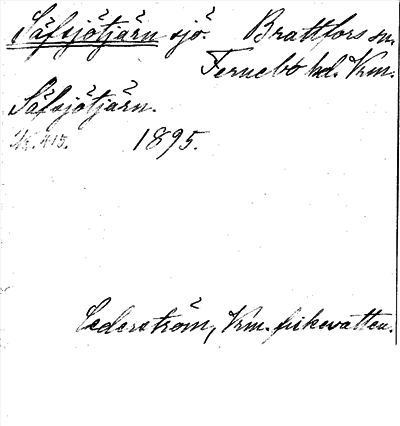 Säfsjötjärn sjö. Brattfors sn.
Fernebo hd. Vrm.
Säfsjötjärn.
1895.
Cederström, Vrm. fiskevatten.